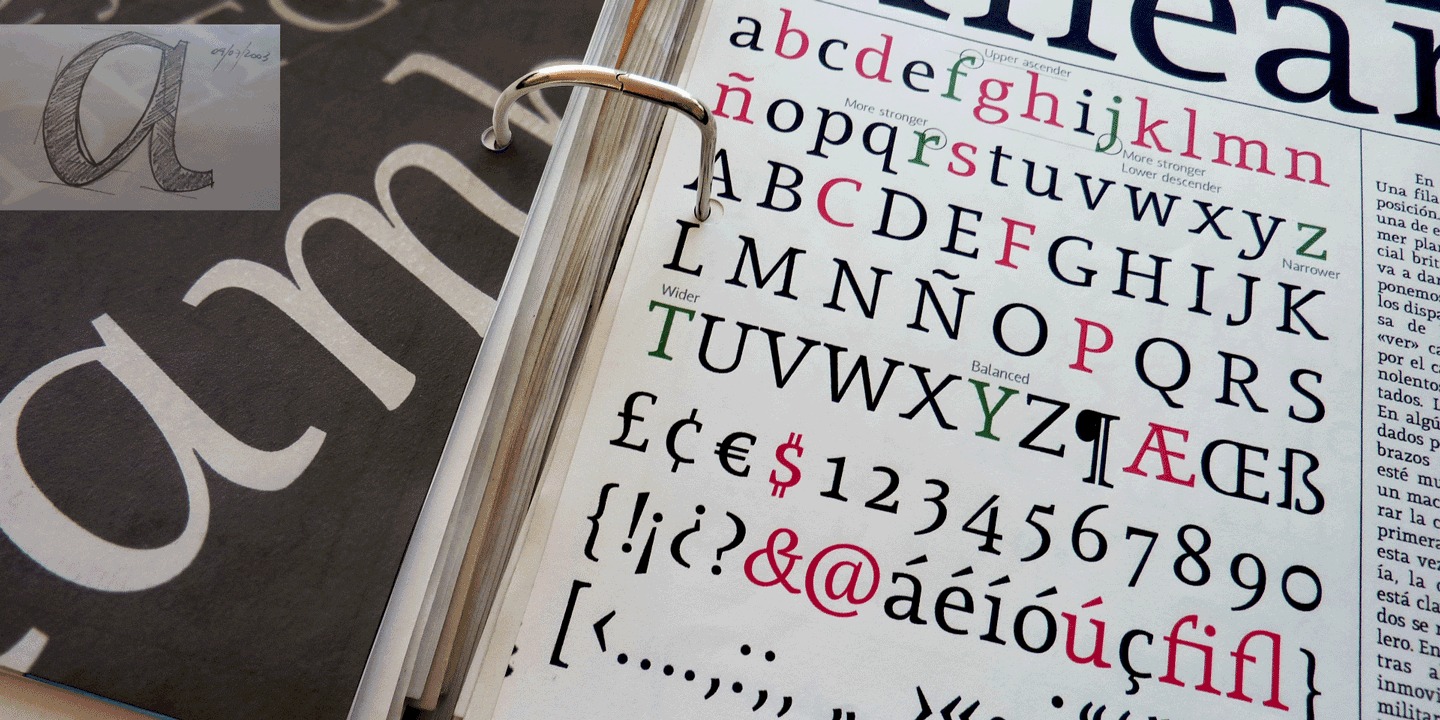 a
09/07/2003
am
a b c d e f g h i j k l m n
Upper ascender
ñ o p q r s t u v w x y z
More stronger
More stronger
Lower descender
Narrower
A B C D E F G H I J K
L M N Ñ O P Q R S
Wider
T U V W X Y Z ¶ Æ Œ ß
Balanced
£ ¢ € $ 1 2 3 4 5 6 7 8 9 0
{ ! ¡ ¿ ? & @ á é í ó ú ç fi fl }
[ ‹ . . . . , . : , ,
En
Una fila
posición.
una de e
mer plan
cial brit
va a dar
ponemos
los dispa
sa de
«ver» ca
por el c
nolentos
tados. L
En algú
dados p
brazos
esté mu
un mac
rar la c
primera
esta vez
ía, la c
está cla
dos se r
lero. En
tras al
inmovi
militar